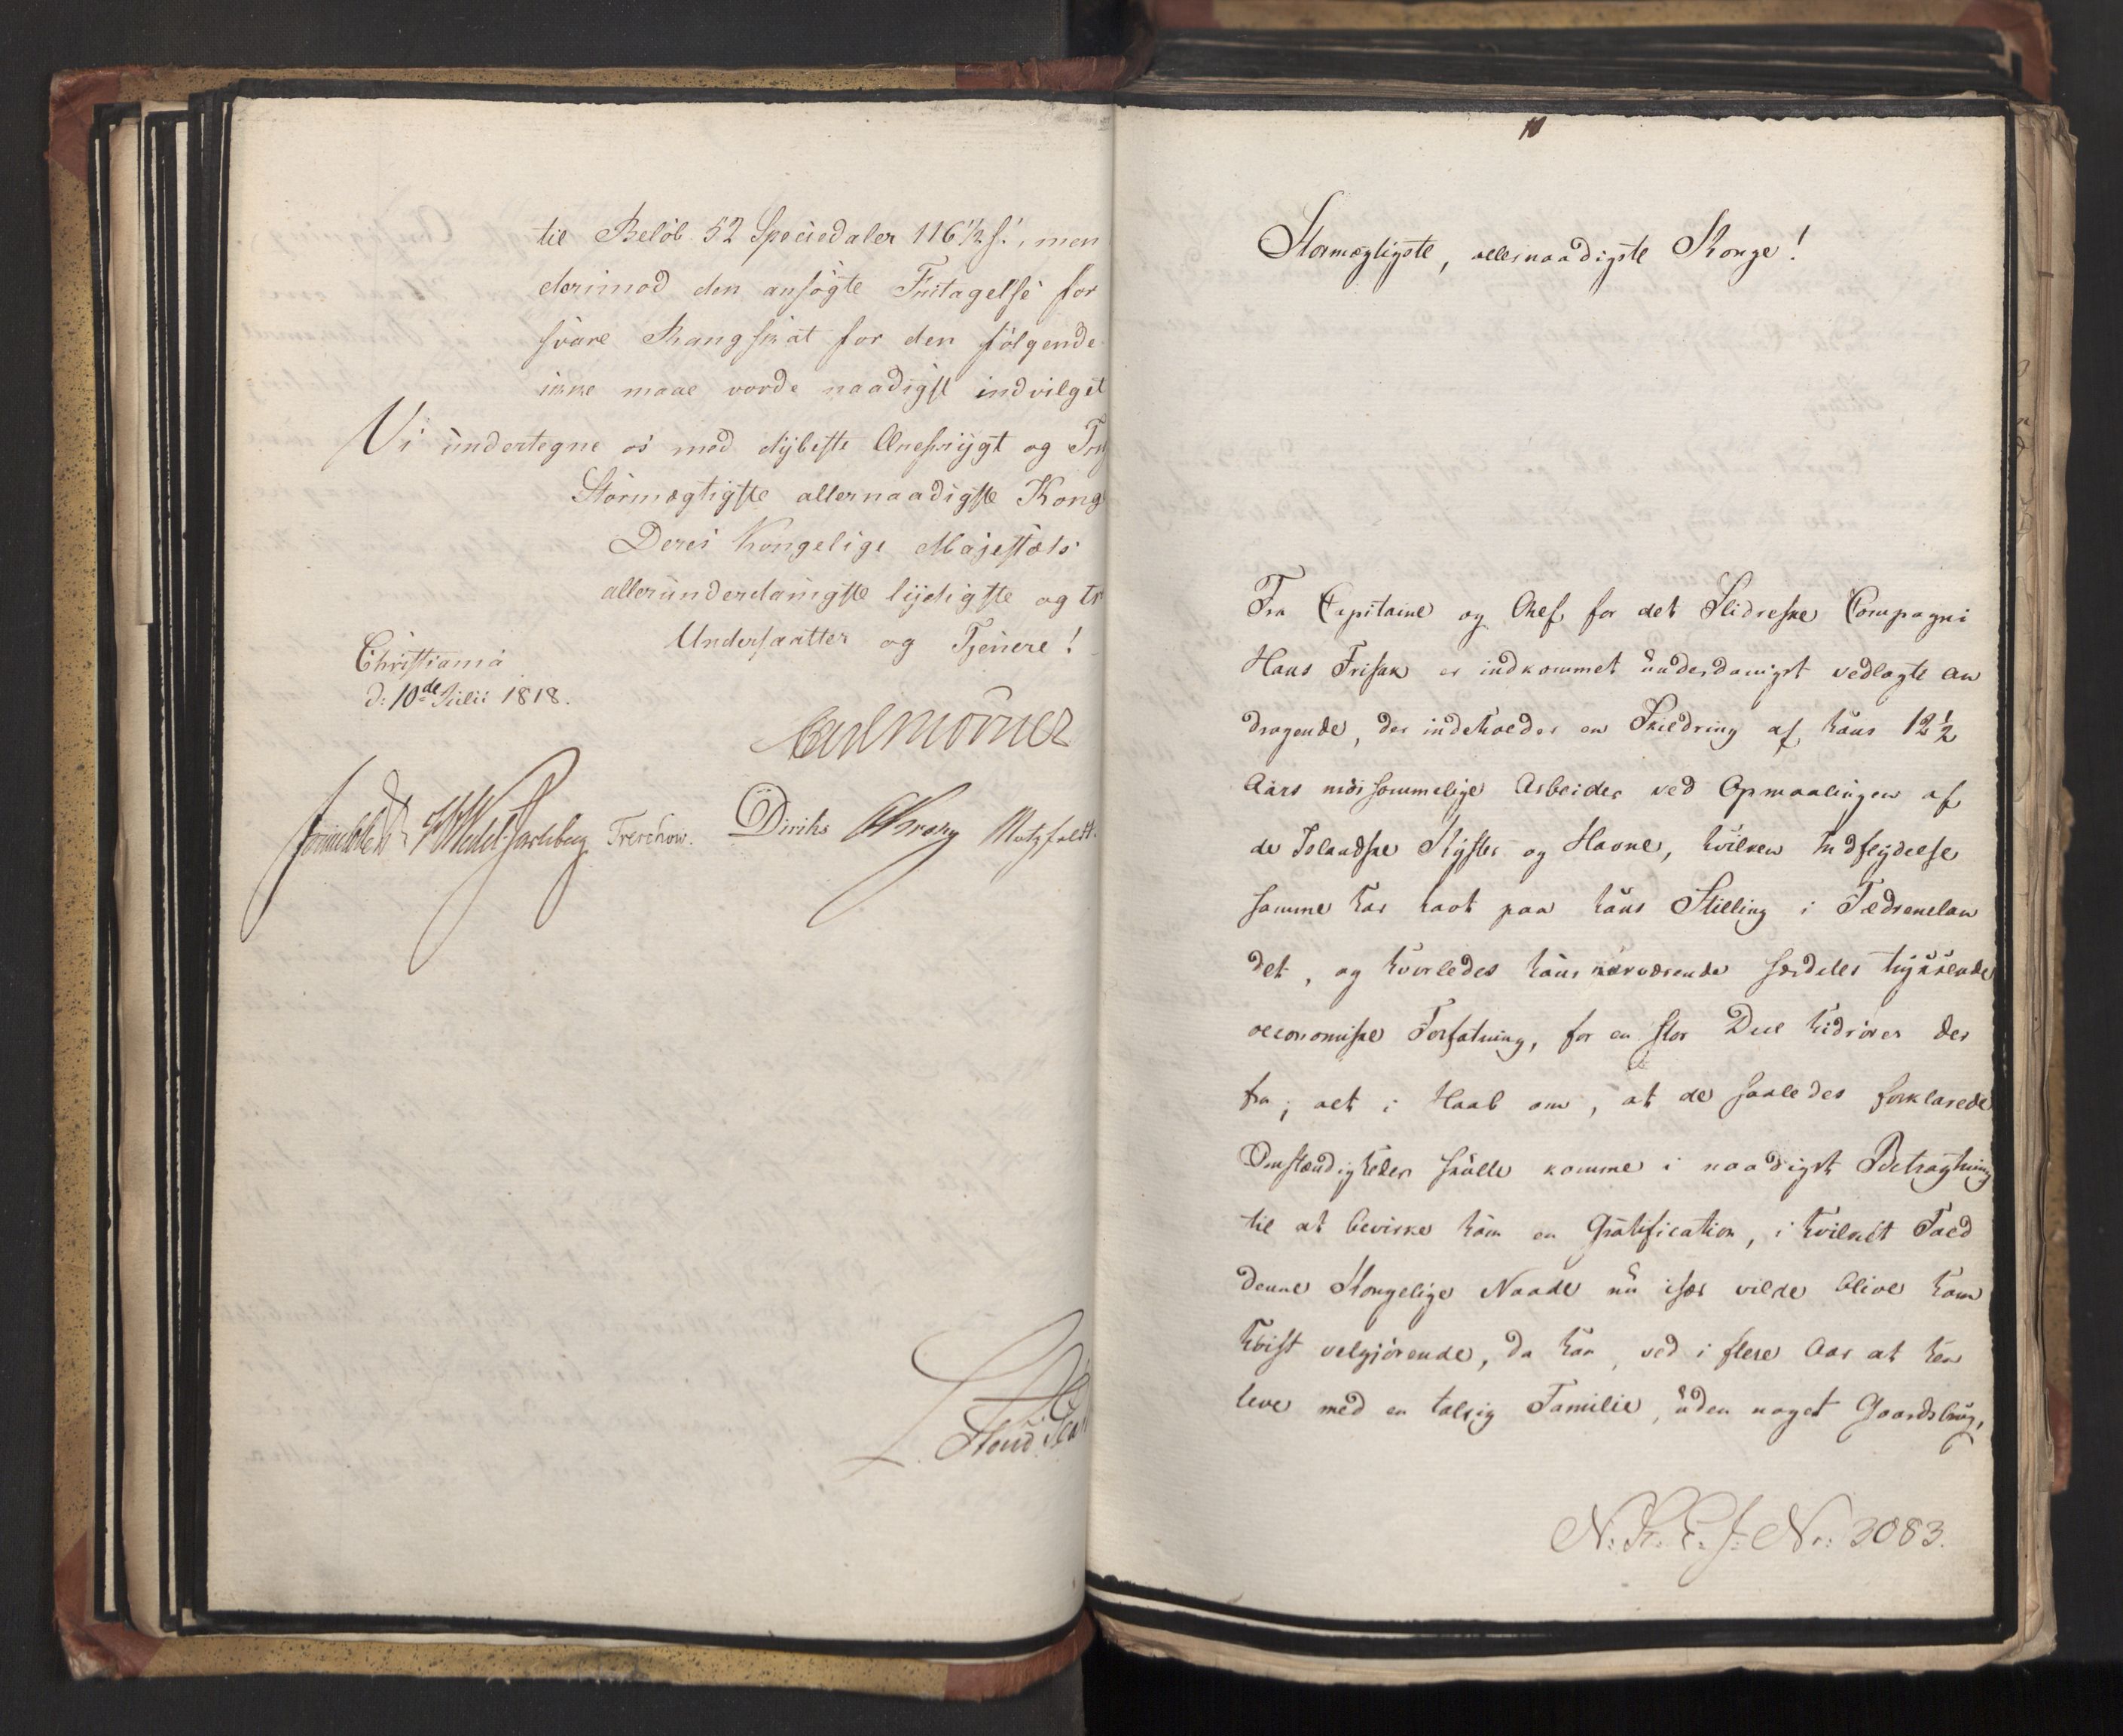 til Beløb 52 Speciedaler 116½ s., men
derimod den ansøgte Fritagelse for
svare Rangskat for den følgende
ikke maae vorde naadigst indvilget
Vi undertegne os med dybeste Ærefrygt og
Stormægtigste allernaadigste Kong
Deres Kongelige Majestæts
allerunderdanigste lydigste og tr
Undersaatter og Tjenere!
Christiania
d: 10de Julii 1818.
Carl Mörner
Sommerhielm Wedel-Jarlsberg Treschow. Diriks Krohg Motzfeldt.
10
Stormægtigste, allernaadigste Konge!
Fra Capitaine og Chef for det Slidreske Compagni
Hans Frisak er indkommet underdanigst vedlagte An
dragende, der indeholder en Skildring af hans 12½
Aars møissommelige Arbeider ved Opmaalingen af
de Islandske Kyster og Havne, hvilken Indflydelse
samme har havt paa hans Stilling i Fædrenelan
det, og hvorledes hans nærværende særdeles trykkende
oeconomiske Forfatning, for en stor Deel hidrører der
fra; alt i Haab om, at de saaledes forklarede
Omstændigheder skulle komme i naadigst Betragtning
til at bevirke ham en Gratification, i hvilket Fald
denne Kongelige Naade nu især vilde blive ham
høist velgjørende, da han, ved i flere Aar at hen
leve med en talrig Familie, uden noget Gaardsbrug,
N: R. E. J: No: 3083.